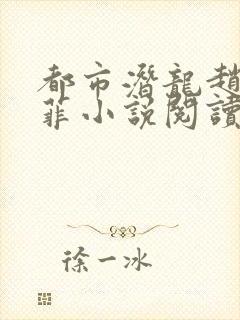 都市潛龍趙
菲小說閱讀
徐一冰